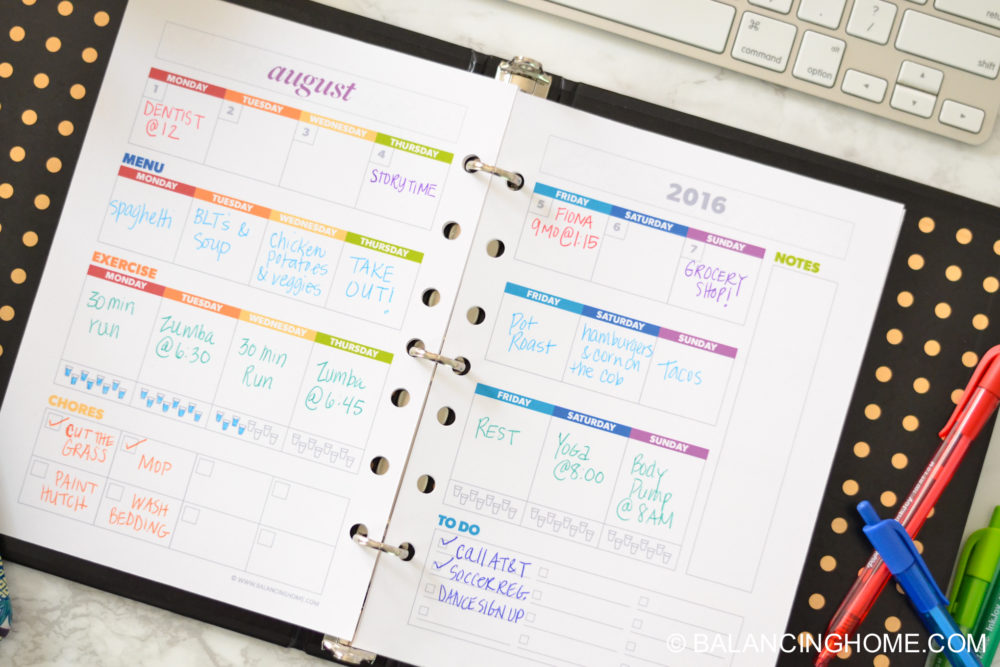 august
MONDAY TUESDAY WEDNESDAY THURSDAY
1 2 3 4
DENTIST
@12
STORYTIME
MENU
MONDAY TUESDAY WEDNESDAY THURSDAY
spaghetti
BLT's &
Soup
chicken
potatoes
& veggies
TAKE
OUT!
EXERCISE
MONDAY TUESDAY WEDNESDAY THURSDAY
30 min
run
Zumba
@6:30
30 min
Run
Zumba
@6:45
CHORES
CUT THE
GRASS
MOP
PAINT
HUTCH
WASH
BEDDING
© WWW.BALANCINGHOME.COM
2016
FRIDAY SATURDAY SUNDAY
5 6 7
FIONA
9MO@1:15
GROCERY
SHOP!
NOTES
FRIDAY SATURDAY SUNDAY
Pot
Roast
hamburgers
& corn on
the cob
Tacos
FRIDAY SATURDAY SUNDAY
REST
Yoga
@8:00
Body
Pump
@8AM
TO DO
Call AT&T
SOCCER REG
DANCE SIGN UP
⌘
command
alt
option
?
/
return
shift
© BALANCINGHOME.COM